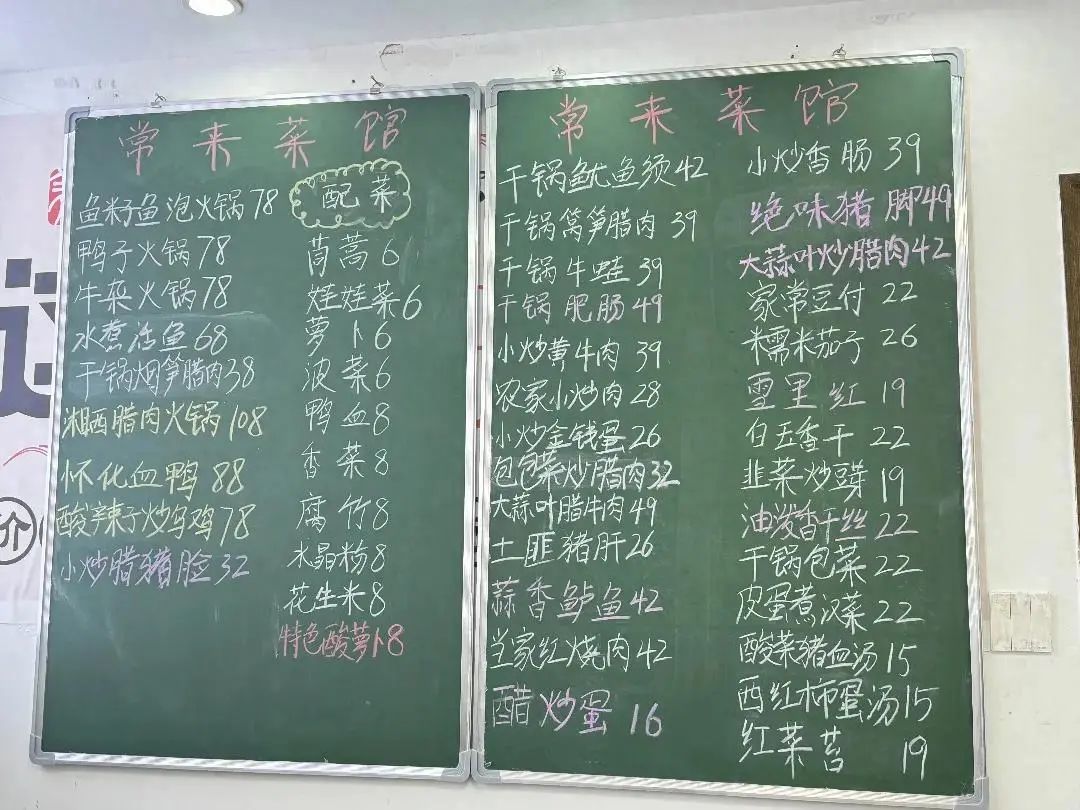 常来菜馆
鱼籽鱼泡火锅78
鸭子火锅78
牛杂火锅78
水煮活鱼68
干锅烟笋腊肉38
湘西腊肉火锅108
怀化血鸭88
酸辣子炒乌鸡78
小炒腊猪脸32
配菜
茼蒿6
娃娃菜6
萝卜6
波菜6
鸭血8
香菜8
腐竹8
水晶粉8
花生米8
特色酸萝卜8
常来菜馆
干锅鱿鱼须42
干锅莴笋腊肉39
干锅牛蛙39
干锅肥肠49
小炒黄牛肉39
农家小炒肉28
小炒金钱蛋26
包包菜炒腊肉32
大蒜叶腊牛肉49
土匪猪肝26
蒜香鲈鱼42
当家红烧肉42
醋炒蛋16
小炒香肠39
绝味猪脚49
大蒜叶炒腊肉42
家常豆付22
糯米茄子26
雪里红19
白五香干22
韭菜炒豆芽19
油泼香干丝22
干锅包菜22
皮蛋煮汉菜22
酸菜猪血汤15
西红柿蛋汤15
红菜苔19
价